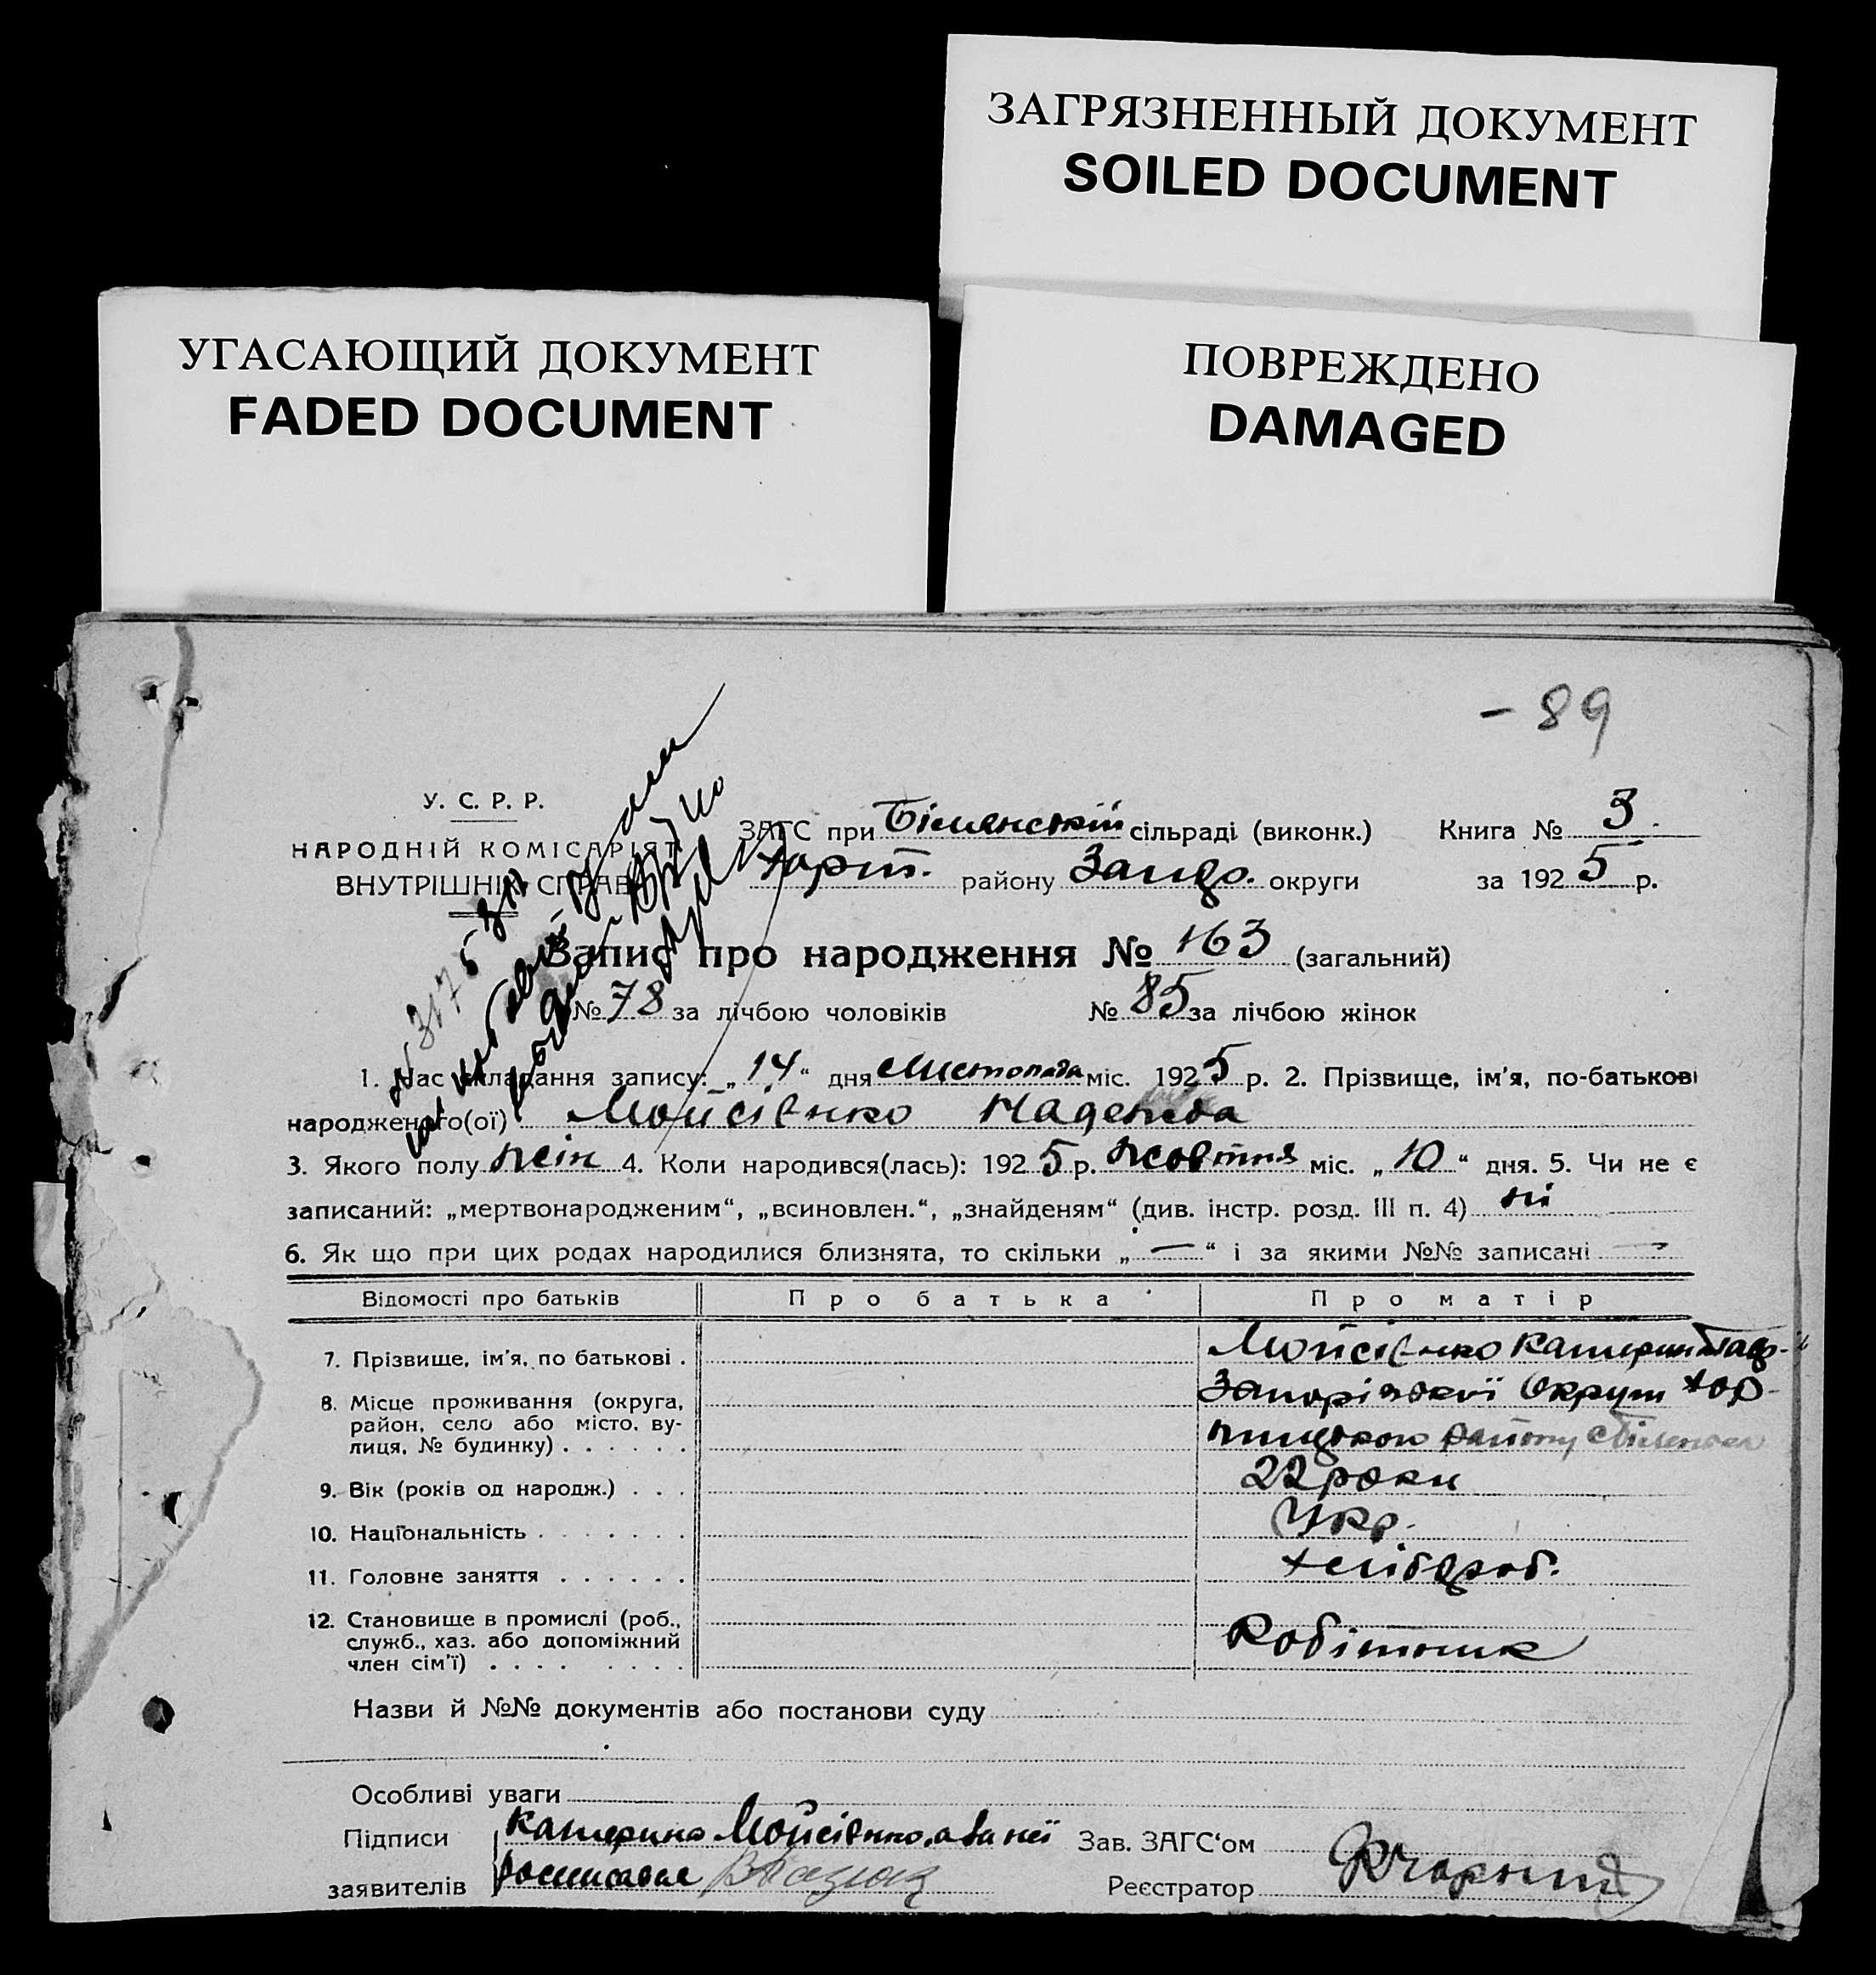 ЗАГРЯЗНЕННЫЙ ДОКУМЕНТ
SOILED DOCUMENT
УГАСАЮЩИЙ ДОКУМЕНТ
FADED DOCUMENT
ПОВРЕЖДЕНО
DAMAGED
- 89
У. С. Р. Р.
НАРОДНІЙ КОМІСАРІЯТ
ВНУТРІШНІХ СПРАВ
ЗАГС при Біленській сільраді (виконк.) Книга № 3
Хорт. району Запор. округи за 1925 р.
Запис про народження № 163 (загальний)
№ 78 за лічбою чоловіків № 85 за лічбою жінок
1. Час складання запису: „14“ дня Листопада міс. 1925 р. 2. Прізвище, ім'я, по-батькові
народженого(ої) Мойсієнко Надежда
3. Якого полу жін 4. Коли народився(лась): 1925 р. жовтня міс. „10“ дня. 5. Чи не є
записаний: „мертвонародженим“, „всиновлен.“, „знайденям“ (див. інстр. розд. III п. 4) ні
6. Як що при цих родах народилися близнята, то скільки „—“ і за якими №№ записані —
Відомості про батьків Про батька Про матір
7. Прізвище, ім'я, по батькові . Мойсієнко Катерина
8. Місце проживання (округа, Запоріжскої Округи Хор-
район, село або місто, ву- тицького району
лиця, № будинку) . . . . . .
9. Вік (років од народж.) . . . 22 роки
10. Національність . . . . . . . Укр.
11. Головне заняття . . . . . . хлібороб.
12. Становище в промислі (роб.,
служб., хаз. або допоміжний Робітник
член сім'ї) . . . . . . . .
Назви й №№ документів або постанови суду
Особливі уваги
Підписи Катерина Мойсієнко, а за неї Зав. ЗАГС'ом
заявителів росписався Реєстратор